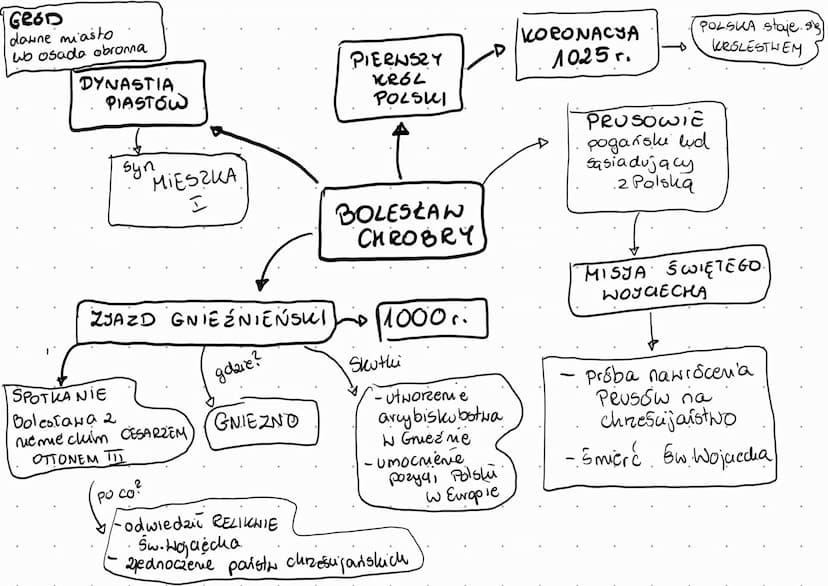 GRÓD
dawne miasto
lub osada obronna
DYNASTIA
PIASTÓW
syn
MIESZKA
I
PIERWSZY
KRÓL
POLSKI
KORONACJA
1025 r.
POLSKA staje się
KRÓLESTWEM
PRUSOWIE
pogański lud
sąsiadujący
z Polską
BOLESŁAW
CHROBRY
MISJA ŚWIĘTEGO
WOJCIECHA
- Próba nawrócenia
PRUSÓW na
chrześcijaństwo
- Śmierć Św. Wojciecha
ZJAZD GNIEŹNIEŃSKI
1000 r.
SPOTKANIE
Bolesława z
niemieckim CESARZEM
OTTONEM III
gdzie?
GNIEZNO
Skutki
- utworzenie
arcybiskubstwa
w Gnieźnie
- umocnienie
pozycji Polski
w Europie
po co?
- odwiedzić RELIKWIE
Św. Wojciecha
- zjednoczenie państw chrześcijańskich